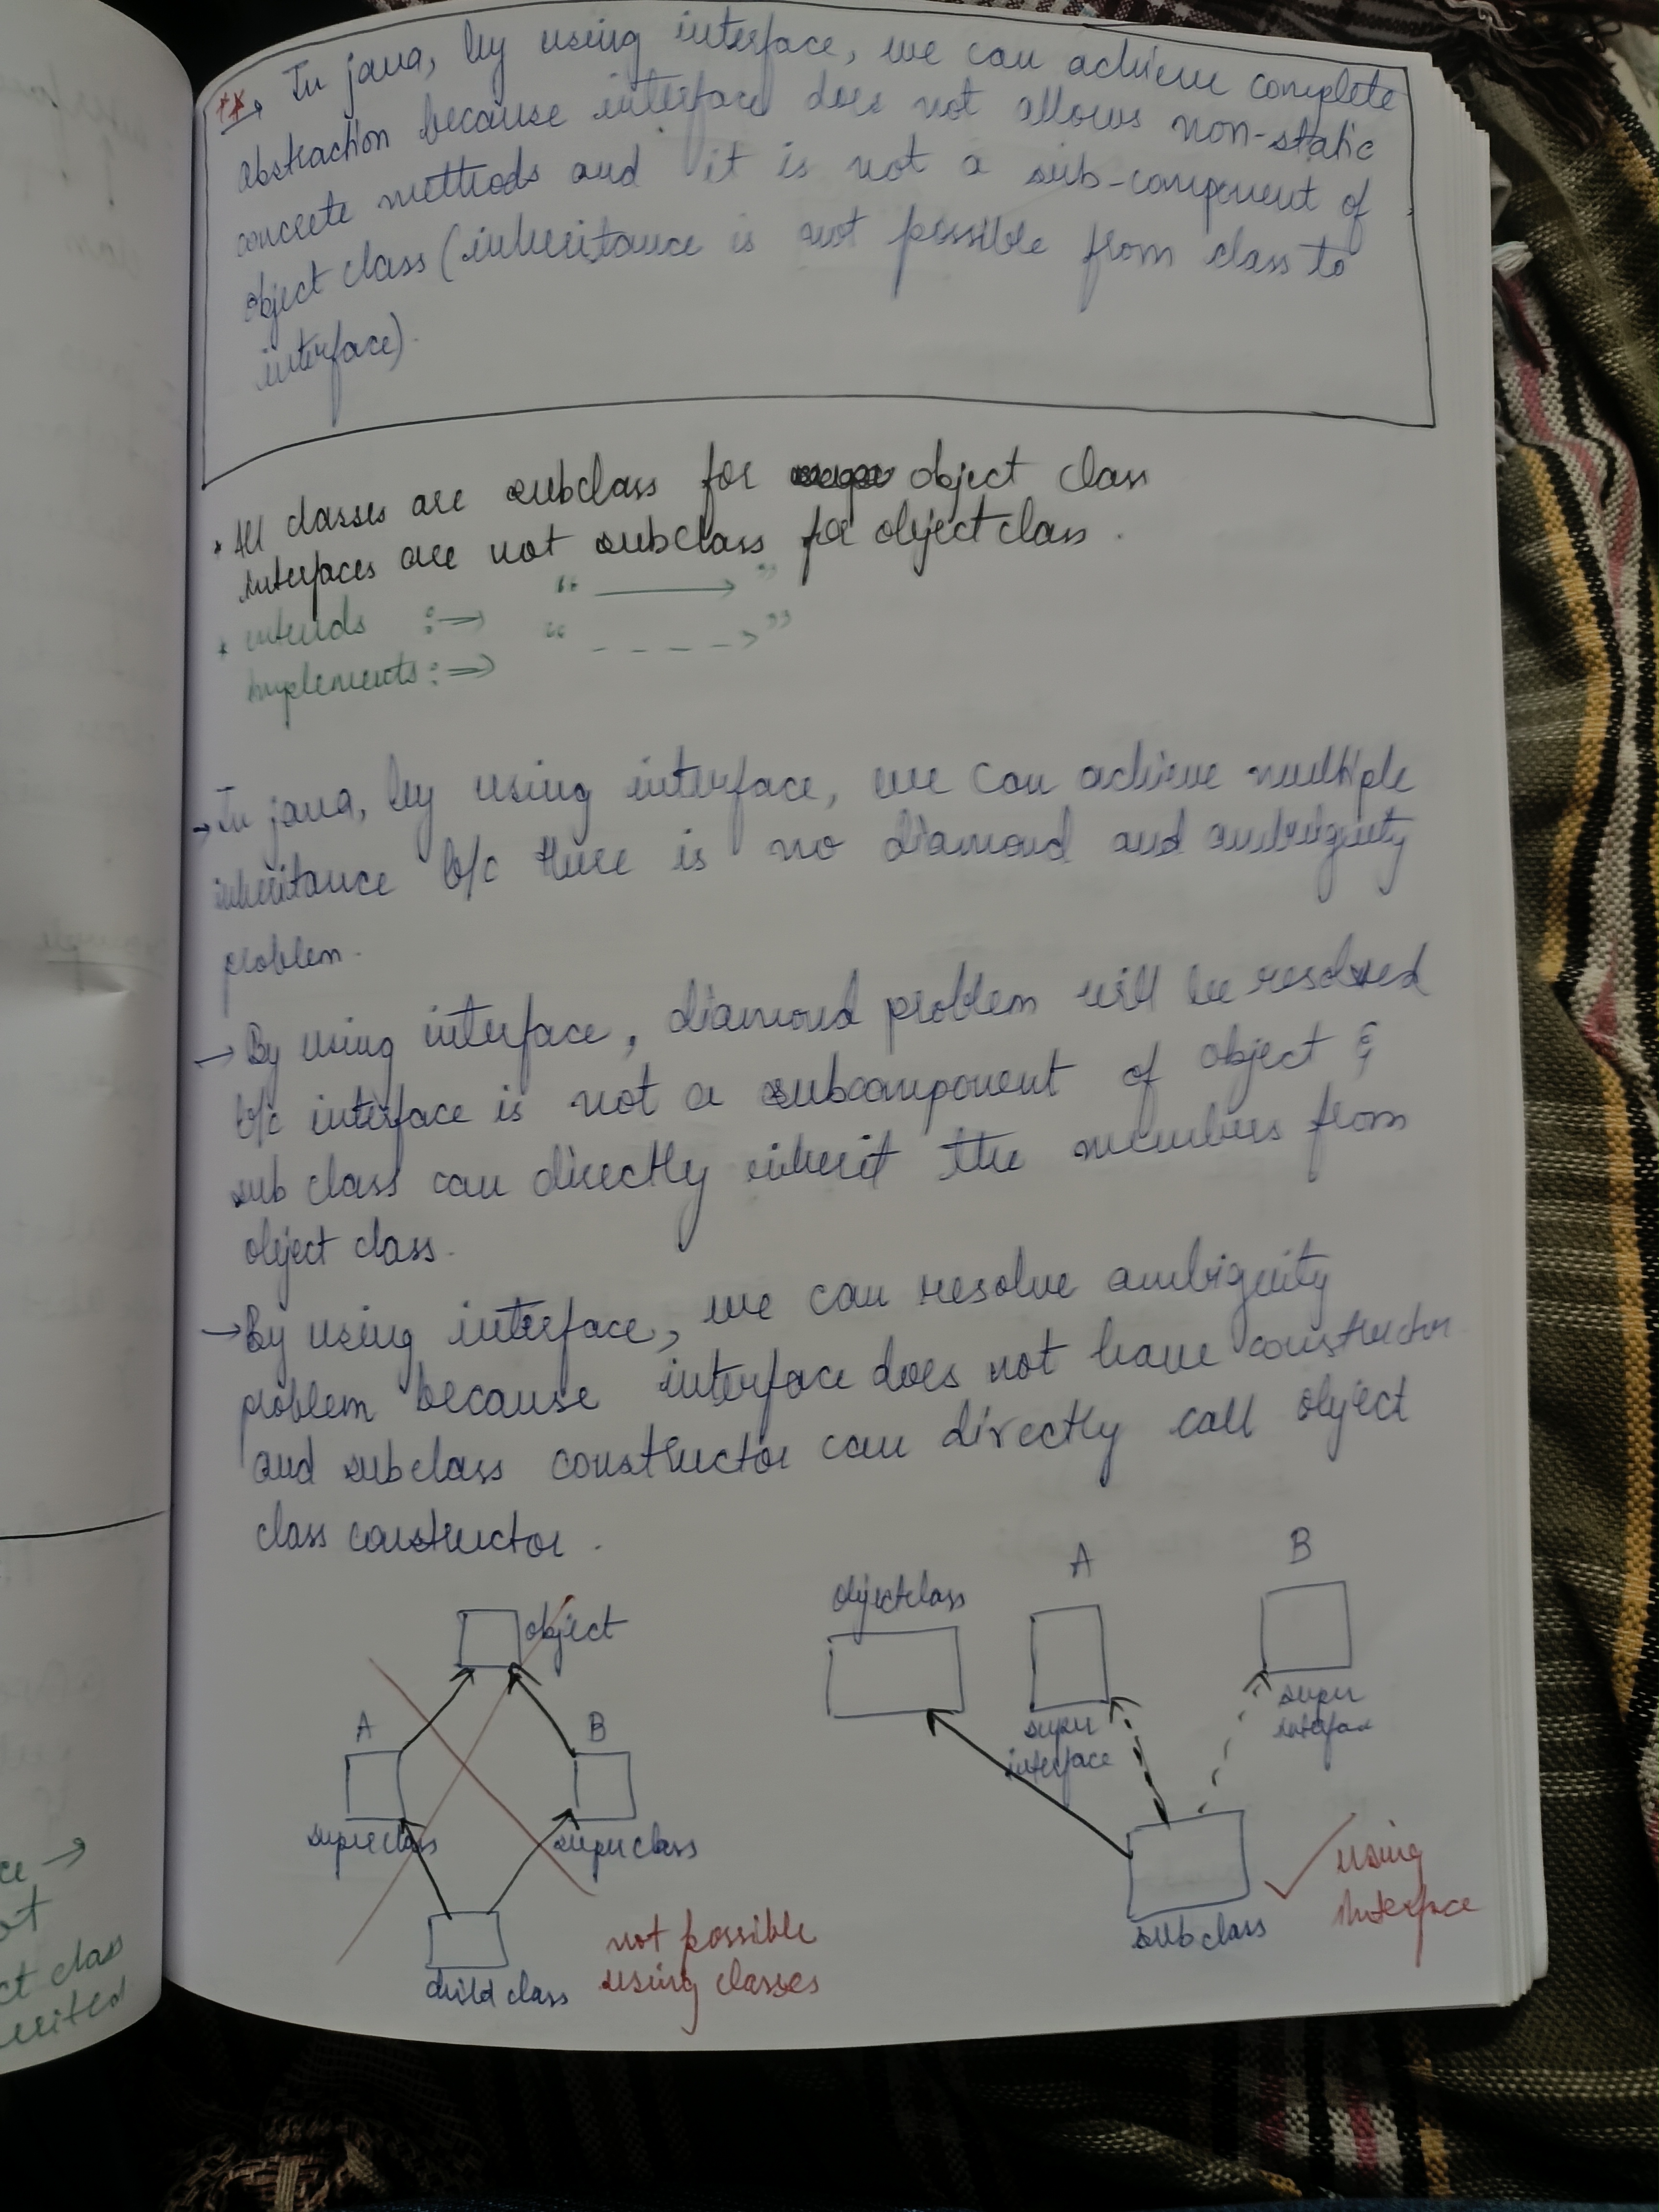 ** → In java, by using interface, we can achieve complete
abstraction because interface does not allows non-static
concrete methods and it is not a sub-component of
object class (inheritance is not possible from class to
interface).
* All classes are subclass for object class
interfaces are not subclass for object class.
* extends :→ “ ⟶ ”
implements :⇒ “ - - - - > ”
→ In java, by using interface, we can achieve multiple
inheritance b/c there is no diamond and ambiguity
problem.
→ By using interface, diamond problem will be resolved
b/c interface is not a subcomponent of object &
sub class can directly inherit the members from
object class.
→ By using interface, we can resolve ambiguity
problem because interface does not have constructor
and subclass constructor can directly call object
class constructor.
object
A B
superclass superclass
child class
not possible
using classes
objectclass A B
super
interface
super
interface
sub class
✓ using
interface
ot
ct class